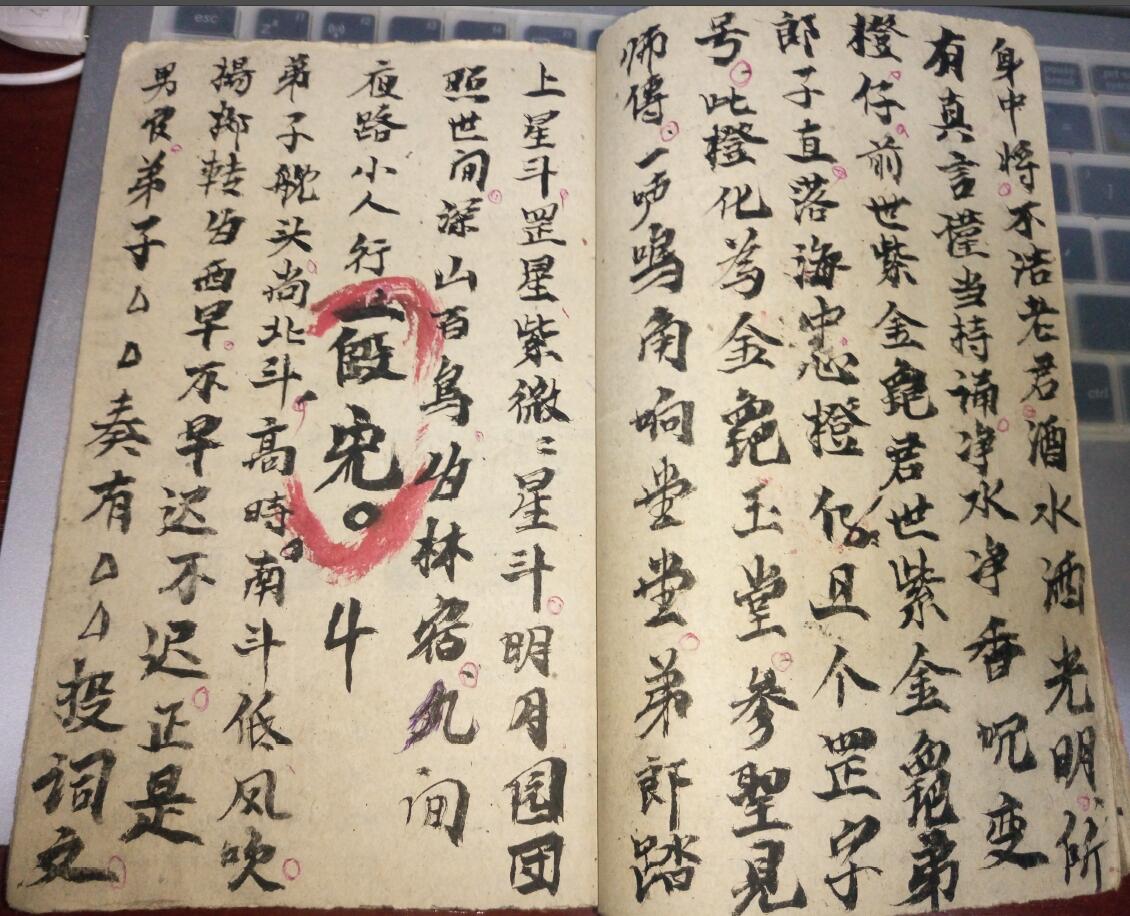 身中将不洁老君酒水酒光明所
有真言僅当持诵净水净香呪变
橙仔前世紫金 君世紫金 弟
郎子直落海中心橙 化且个罡字
号此橙化為金 玉堂参聖見
师傅一吹鳴角响堂堂弟郎踏
上星斗罡星紫微〻星斗明月园团
照世间深山百鳥 林宿九间
夜路小人行
斗
弟子 头尚北斗高時南斗低凤吹
揚柳转 西早不早迟不迟正是
男官弟子△△奏有△△投词文
esc
ctrl